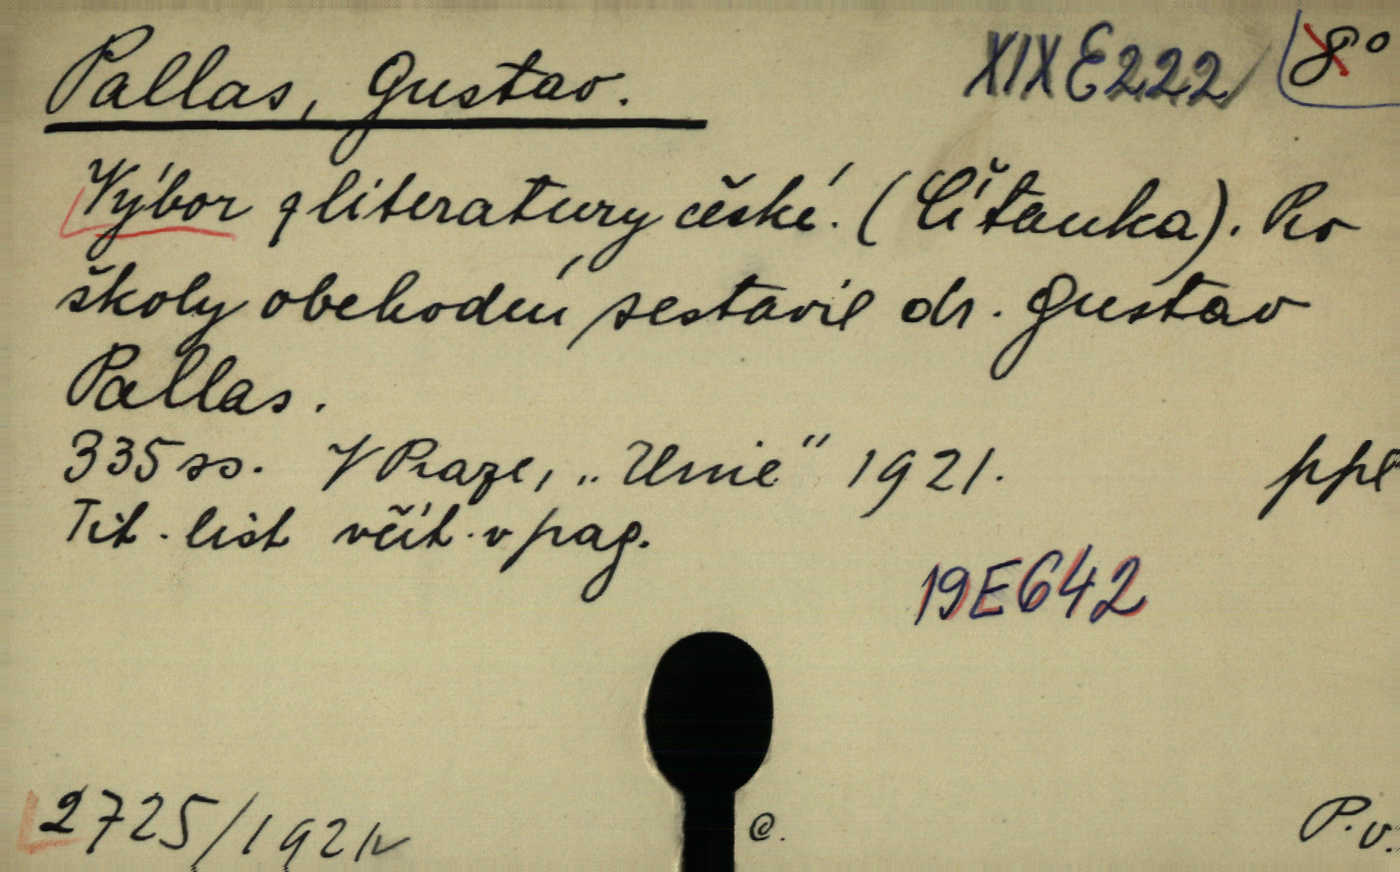 Pallas, Gustav. XIXE222 8°
Výbor z literatury české. (Čítanka). Pro
školy obchodní sestavil dr. Gustav
Pallas.
335 ss. V Praze, „Unie" 1921. ppl
Tit. list včít. v pag.
19E642
2725/1921 C. P.v.